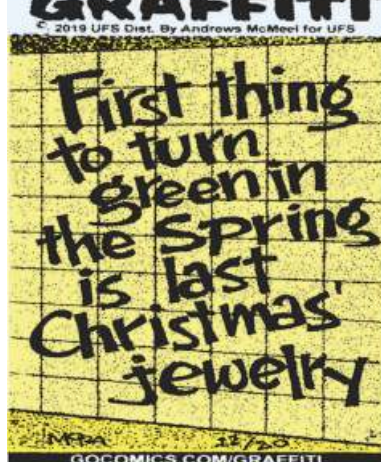 GRAFFITI
© 2019 UFS Dist. By Andrews McMeel for UFS
First thing
to turn
green in
the Spring
is last
Christmas'
jewelry
12/20
GOCOMICS.COM/GRAFFITI